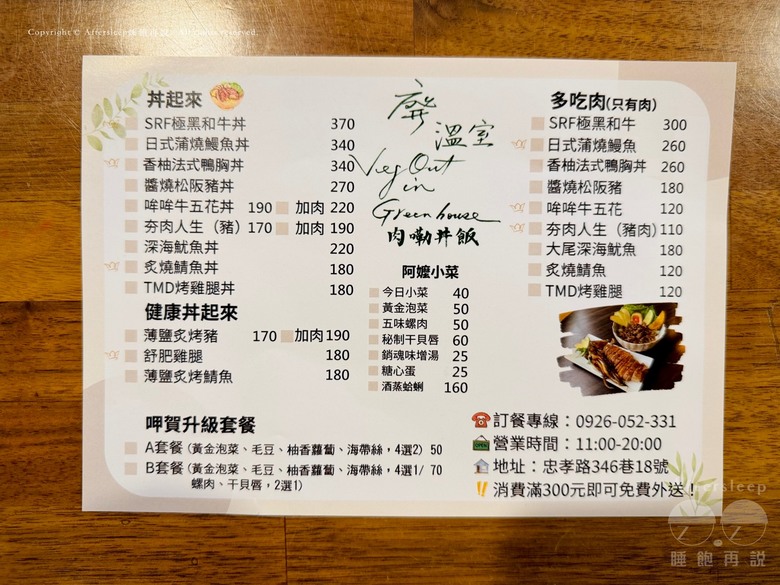 Copyright © Aftersleep睡飽再說. All rights reserved.
丼起來
SRF極黑和牛丼 370
日式蒲燒鰻魚丼 340
香柚法式鴨胸丼 340
醬燒松阪豬丼 270
哞哞牛五花丼 190 加肉 220
夯肉人生（豬）170 加肉 190
深海魷魚丼 220
炙燒鯖魚丼 180
TMD烤雞腿丼 180
健康丼起來
薄鹽炙烤豬 170 加肉190
舒肥雞腿 180
薄鹽炙烤鯖魚 180
溫室
Veg Out
in
Greenhouse
肉嘞丼飯
阿嬤小菜
今日小菜 40
黃金泡菜 50
五味螺肉 50
秘制干貝唇 60
銷魂味增湯 25
糖心蛋 25
酒蒸蛤蜊 160
多吃肉(只有肉)
SRF極黑和牛 300
日式蒲燒鰻魚 260
香柚法式鴨胸丼 260
醬燒松阪豬 180
哞哞牛五花 120
夯肉人生（豬肉）110
大尾深海魷魚 180
炙燒鯖魚 120
TMD烤雞腿 120
呷賀升級套餐
A套餐（黃金泡菜、毛豆、柚香蘿蔔、海帶絲，4選2）50
B套餐（黃金泡菜、毛豆、柚香蘿蔔、海帶絲，4選1/ 70
螺肉、干貝唇，2選1）
訂餐專線：0926-052-331
OPEN
營業時間：11:00-20:00
地址：忠孝路346巷18號
消費滿300元即可免費外送！
Aftersleep
睡飽再說